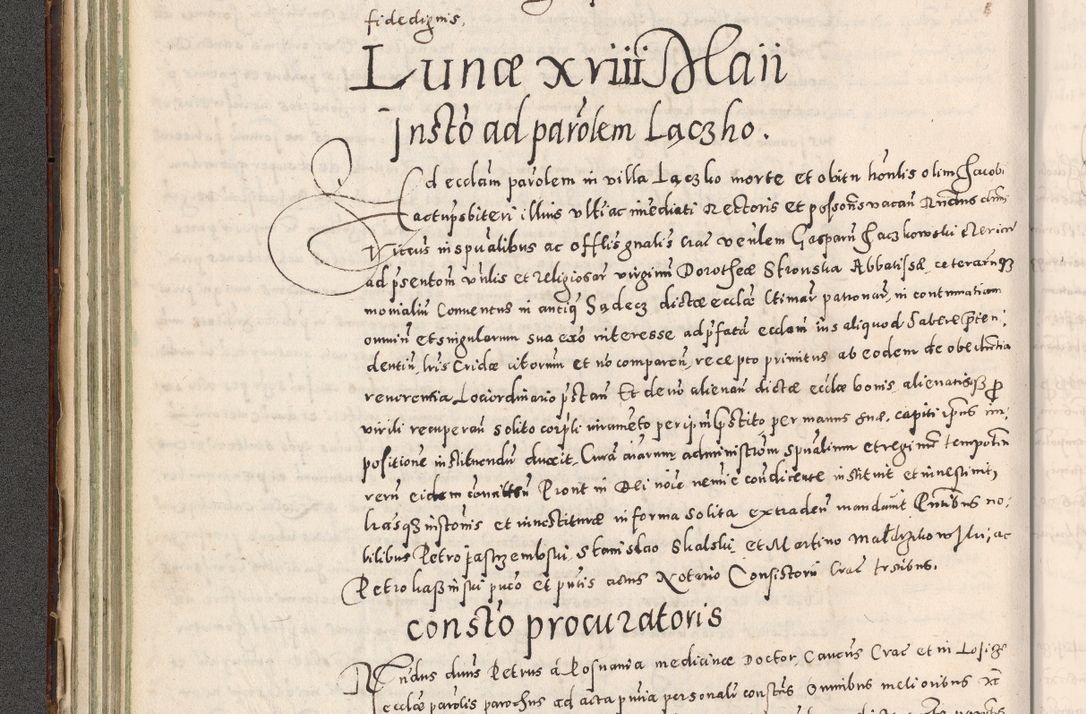 fidedignis,
Lunæ xviii Maii
Instō ad parolem Lączko.
Ad ecclam parolem in villa Lączko morte et obitu honlis olim Jacobi
actu psbiteri illius ulti ac imediati Rectoris et possoris vacan Rndus dnus
Vicius in spualibus ac offlis gnalis Crac venlem Gasparu Jaczkowski clericu
ad psentom vnlis et religiosar virginu Dorotheæ Stronska Abbatissæ ceterarusq3
monialiu Conventus in antiq Sądecz dictæ ecclæ ltimar patronar, in contumatiam
omniu et singularum sua exo interesse ad pfata ecclam ius aliquod habere prten:
dentiu, lris Cridæ citorum et no comparen, recepto primitus ab eodem de obedientia
reverentia Loci ordinario pstan Et de no alienan dictæ ecclæ bonis alienatisq3 pro
virili recuperan solito corpli iurameto per ipm pstito per manus suæ capiti ipsius im:
positione instituendu duxit. Cura aiarum administriom spualium et regimen temporaliu
reru eidem comitten Pront in Dei noie nemie condicente instituit et investivit,
lrasq3 instonis et investituræ in forma solita extraden mandavit Pntibus no:
bilibus Petro Jastrzembski, Stanislao Skalski et Martino Maldrzikowski, ac
Petro kassinski puco et putis actus Notario Consistorii Crac testibus.
constō procuratoris
Rndus dnus Petrus a Posnania medicinæ Doctor, Cancus Crac et in
ecclæ parolis parochus ad acta pntia personali constus Omnibus melioribus